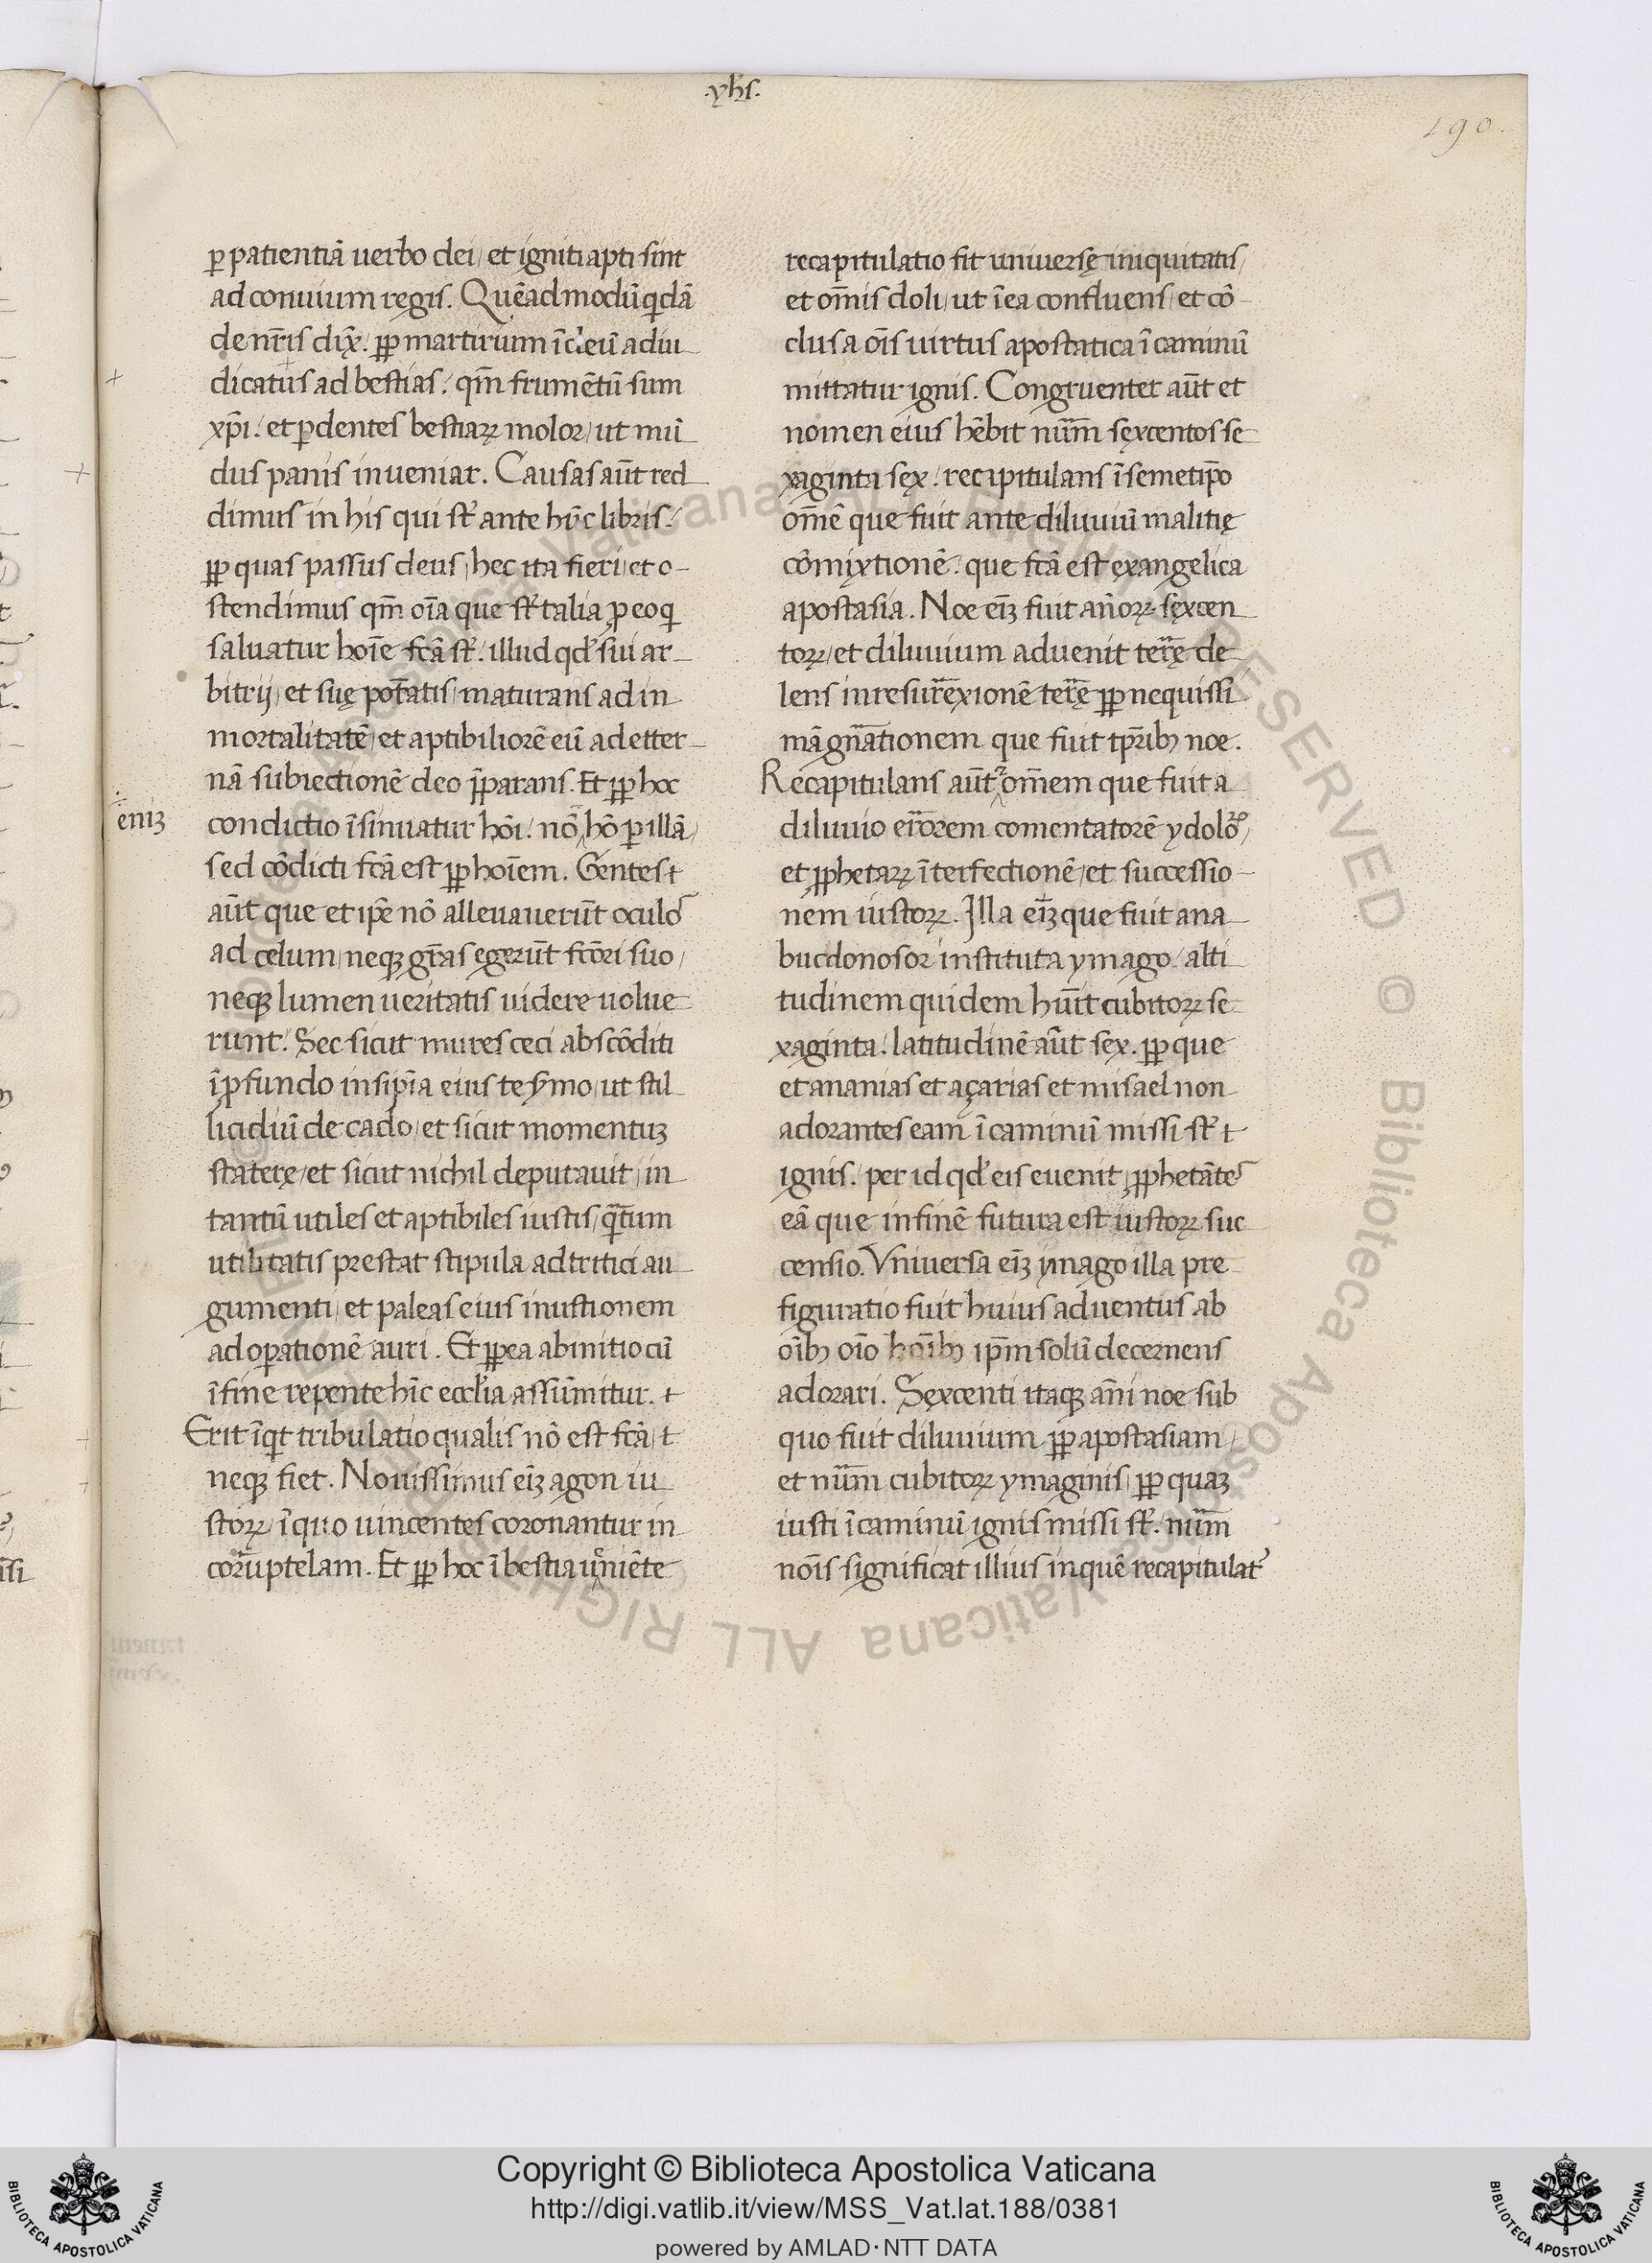 .yhs.
190.
ꝑ patientiā uerbo dei / et igniti apti sint
ad conuiuium regis. Quēadmodū qdā
de nr̄is dix̄. ꝓp martirium ī deū adiu
dicatus ad bestias / qm̄ frumētū sum
xp̄i / et ꝑ dentes bestiaꝝ molor / ut mū
dus panis inueniar. Causas aūt red
dimus in his qui st̄ ante hūc libris /
ꝓp quas passus deus / hec ita fieri / et o-
stendimus qm̄ oīa que st̄ talia ꝓ eo qi
saluatur hoīe fcā st̄ / illud qd̄ sui ar-
bitrij / et suę potātis / maturans ad in
mortalitatē / et aptibiliorē eū ad etter-
nā subiectionē deo p̄parans. Et ꝓp hoc
enīꝫ
condictio īsinuatur hōi / nō hō ꝑ illā /
sed cōdicti fcā est ꝓp hoīem. Gentes t
aūt que et ip̄e nō alleuauerūt oculos
ad celum / neqꝫ gr̄as egerūt fcōri suo /
neqꝫ lumen ueritatis uidere uolue
runt / Sec sicut mures ceci abscōditi
īꝓfundo insipīa eius tesymo / ut stil
licidiū de cado / et sicut momentuꝫ
staterę / et sicut nichil deputauit / in
tantū utiles et aptibiles iustis / qātum
utilitatis prestat stipula ad tritici au
gumenti / et paleas eius inustionem
ad oꝑationē auri. Et ꝓpea ab initio cū
ī fine repente hīc eccl̄ia assūmitur. t
Erit īqt tribulatio qualis nō est fcā / t
neqꝫ fiet. Nouissimus eīꝫ agon iu
stoꝝ / ī quo uincentes coronantur in
corr̄uptelam. Et ꝓp hoc ī bestia ueniēte
recapitulatio fit uniuersę iniquitatis /
et om̄is doli / ut ī ea confluens / et cō-
clusa oīs uirtus apostatica ī caminū
mittatur ignis. Congruenter aūt et
nomen eius hēbit num̄ sęxcentos se
xaginta sęx / recapitulans ī semetip̄o
om̄ē que fuit ante diluuiū malitię
cōmixtionē / que fcā est ęxangelica
apostasia. Noe eīꝫ fuit an̄oꝝ sęxcen
toꝝ / et diluuium aduenit terr̄ę de-
lens inresurr̄ęxionē terr̄ę ꝓp nequissi
mā gn̄ationem que fuit tp̄ribꝫ noe.
Recapitulans aūt om̄em que fuit a
diluuio err̄orem comentatorē ydoloꝝ /
et ꝓphetaꝝ īterfectionē / et successio-
nem iustoꝝ. Illa eīꝫ que fuit a na
bucdonosor instituta ymago / alti
tudinem quidem hūit cubitoꝝ se
xaginta / latitudinē aūt sęx. ꝓp que
et ananias et açarias et misael non
adorantes eam ī caminū missi st̄ t
ignis / per id qd̄ eis euenit / ꝓphetātes
eā que in finē futura est iustoꝝ suc
censio. Vniuersa eīꝫ ymago illa pre
figuratio fuit huius aduentus ab
oībꝫ oīo hoībꝫ ip̄m solū decernens
adorari. Sęxcenti itaqꝫ an̄i noe sub
quo fuit diluuium ꝓp apostasiam /
et num̄ cubitoꝝ ymaginis / ꝓp quaꝫ
iusti ī caminū ignis missi st̄ / num̄
noīs significat illius in quē recapitulat᷑
Copyright © Biblioteca Apostolica Vaticana
http://digi.vatlib.it/view/MSS_Vat.lat.188/0381
powered by AMLAD·NTT DATA
BIBLIOTECA APOSTOLICA VATICANA
BIBLIOTECA APOSTOLICA VATICANA